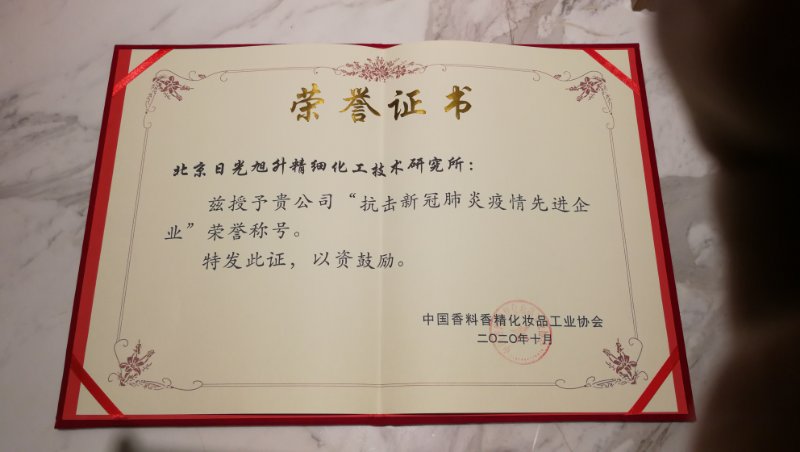 荣誉证书
北京日光旭升精细化工技术研究所：
兹授予贵公司“抗击新冠肺炎疫情先进企
业”荣誉称号。
特发此证，以资鼓励。
中国香料香精化妆品工业协会
二〇二〇年十月